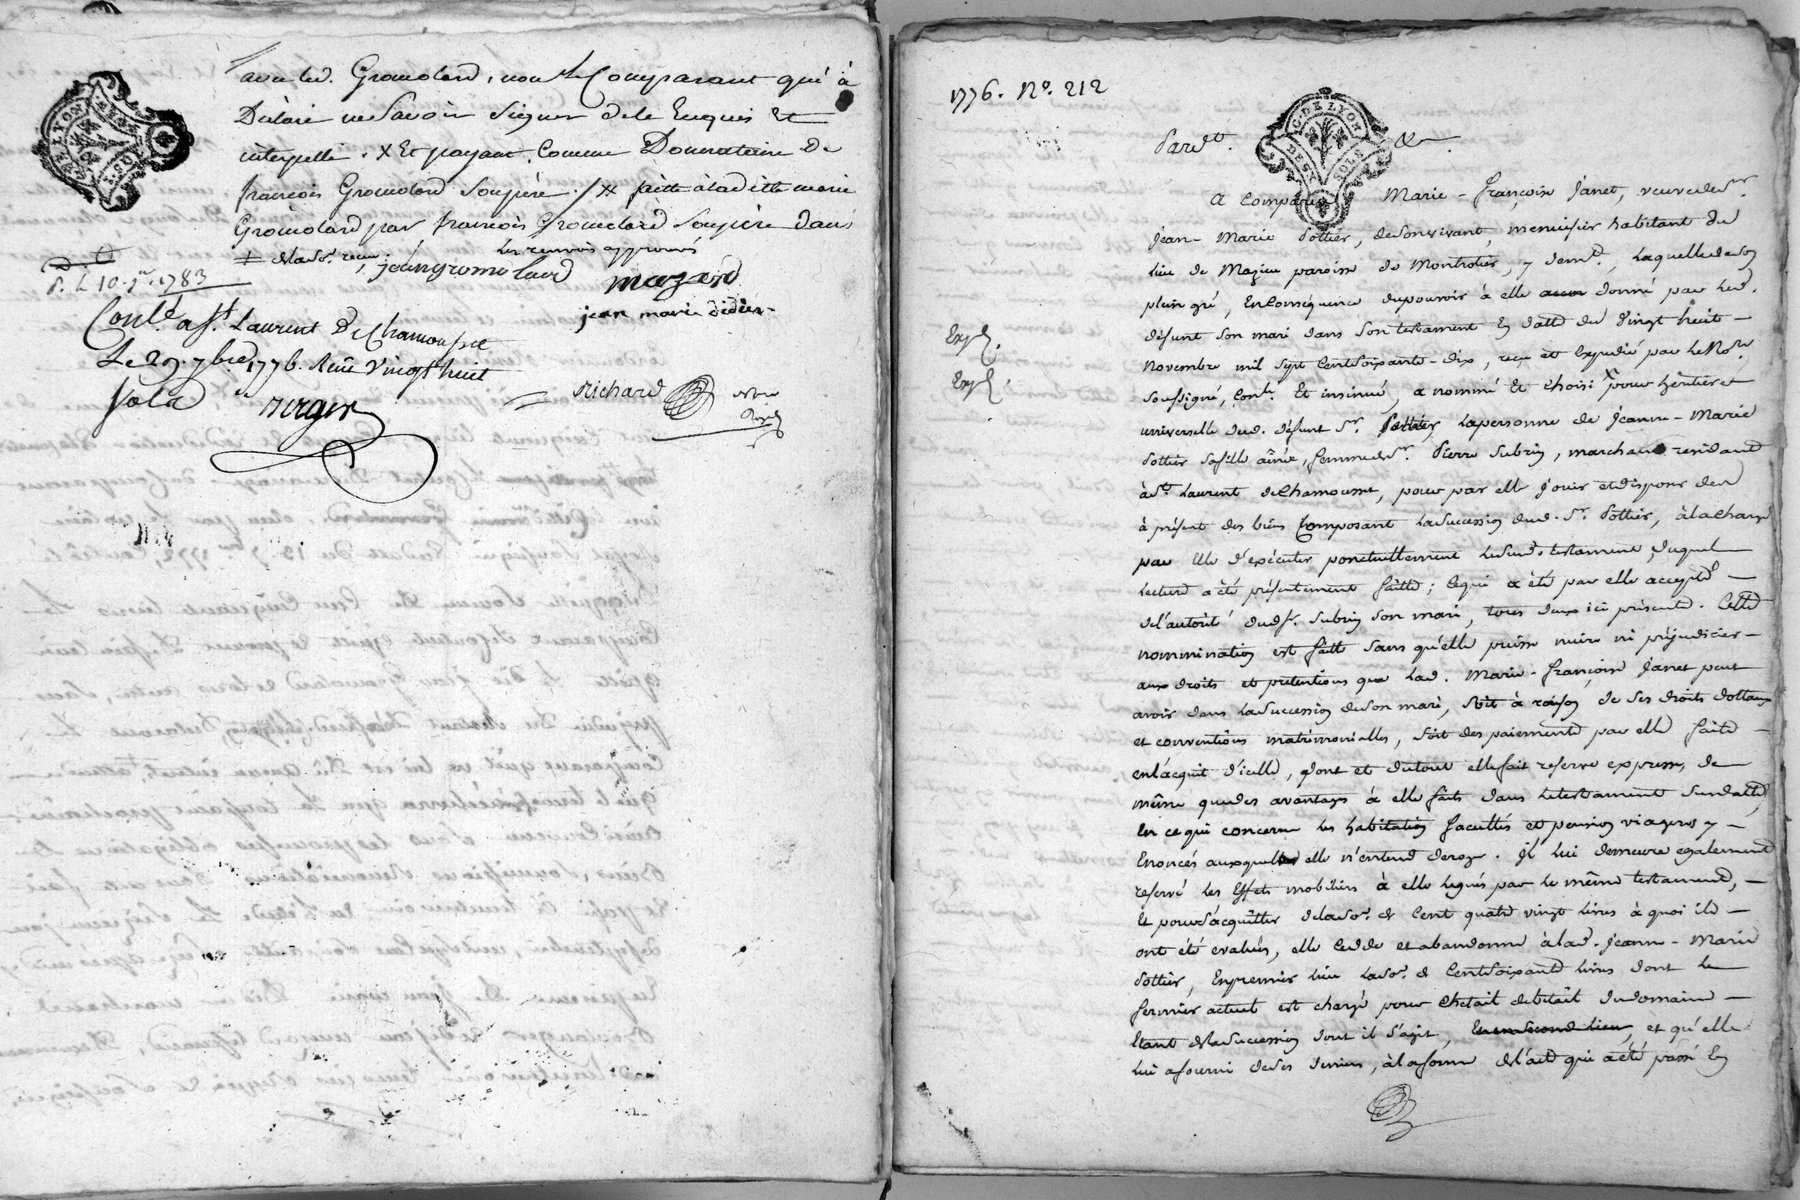 avec led. Gromolard, non le Comparant qui a
Déclaré ne Savoir Signer de ce Enquis Et
interpellé. X Et payant Comme Donnataire De
françois Gromolard Son père ./. X faitte à lad itte marie
Gromolard par françois Gromolard Son père dans
les renvois approuvés
jean gromolard
mazard
jean marie didier
D. le 10. 1783
Conlé. a St. Laurent De Chamousset
Le 29. 7bre. 1776. Reçu Vingt huit
Sols
Richard
1776. No. 212
G. DE LYON
Pardt. &a.
A Comparu Marie-françoise Janet, veuve de Sr.
Jean-Marie Pottier, de son vivant, menuisier habitant du
lieu de Mazieu paroisse de Montrotier, y demt., laquelle de son
plein gré, En Conséquence du pouvoir à elle donné par led.
défunt Son mari dans Son testament En datte du Vingt huit
Novembre mil Sept Cent Soixante-dix, reçu et Expedié par le Nore.
Soussigné, Conlé. Et insinué, a nommé Et choisi X pour héritiere
Exp.
Exp.
universelle dud. défunt Sr. Pottier, la personne de Jeanne-Marie
Pottier Sa fille aînée, femme de Sr. Pierre Subrin, marchand residant
à St. Laurent de Chamousset, pour par elle jouir et disposer des
à présent des biens Composant la Succession dud. Sr. Pottier, à la charge
par Elle d'exécuter ponctuellement le Susd. testament, duquel
lecture a été présentement faitte; Ce qui a été par elle accepté
de l'autorité dud. Sr. Subrin Son mari, tous deux ici présents. Cette
nommination est faitte Sans qu'elle puisse nuire ni préjudicier
aux droits et prétentions que lad. Marie-françoise Janet peut
avoir dans la Succession de Son mari, Soit à raison de Ses droits dottaux
et conventions matrimonialles, Soit des paiements par elle faits
en l'acquit d'icelle, dont et du tout elle fait reserve expresse, de
même que des avantages à elle faits dans le testament Susdatté,
En ce qui concerne les habitation facultés et pension viageres y
Enoncés auxquels elle n'entend deroger. Il lui demeure egalement
reservé les Effets mobiliers à elle legués par le même testament,
Et pour S'acquitter de la Se. de Cent quatre vingt livres à quoi ils
ont été evalués, elle Cedde et abandonne à lad. Jeanne-Marie
Pottier, En premier lieu la Se. de Cent Soixante livres dont le
fermier actuel est chargé pour Chetail de betail du domaine
Etant de la Succession dont il S'agit, Et en Second lieu, et qu'elle
lui a fourni de Ses deniers, à la forme de l'acte qui a été passé En